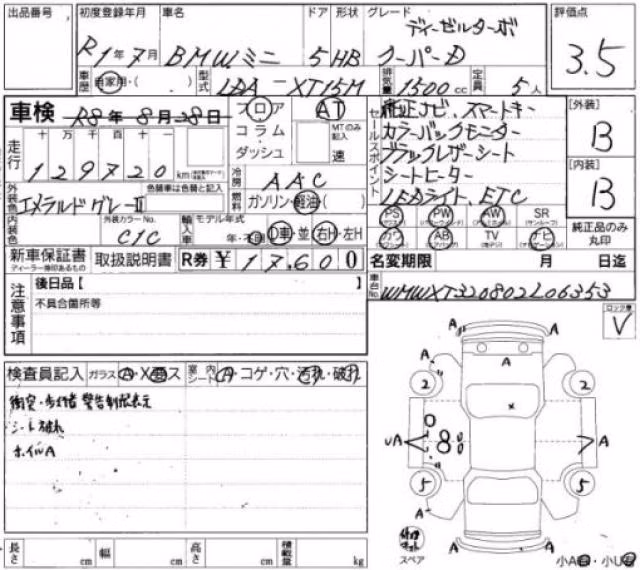 出品番号 初度登録年月 車名 ドア 形状 グレード 評価点
R1年7月 BMWミニ 5 HB ディーゼルターボ クーパーD 3.5
車歴 自家用・( ) 型式 LDA-XT15M 排気量 1500cc 定員 5人
車検 R8年8月28日 フロア AT
コラム・ダッシュ MTのみ記入 速
走行 十万千百十一 129720 km
冷房 AAC
外装色 エメラルドグレーII 色替車は色替と記入 燃料 ガソリン・軽油( )
内装色 外装カラーNo. C1C 輸入車 モデル年式 年・不明 D車・並 右H・左H
新車保証書 ディーラー捺印あるもの 取扱説明書 R券 ¥17,600
セールスポイント
純正ナビ、スマートキー
カラーバックモニター
ブラックレザーシート
シートヒーター
LEDライト、ETC
[外装] B
[内装] B
PS PW AW SR(サンルーフ)
カワ AB(エアバッグ) TV(地デジ) ナビ
純正品のみ丸印
名変期限 月 日迄
車台No. WMWXT320802L06353
注意事項 後日品【 】
不具合箇所等
ロック車 V
検査員記入 ガラス A・X・ス 室内シート A・コゲ・穴・汚れ・破れ
衝突・歩行者 警告制限表示
シート破れ
ホイルA
A A
A
A
2 2
UA 8 A
5 5
A A
A A
スペア 小A 小U
長さ cm 幅 cm 高さ cm 積載量 kg